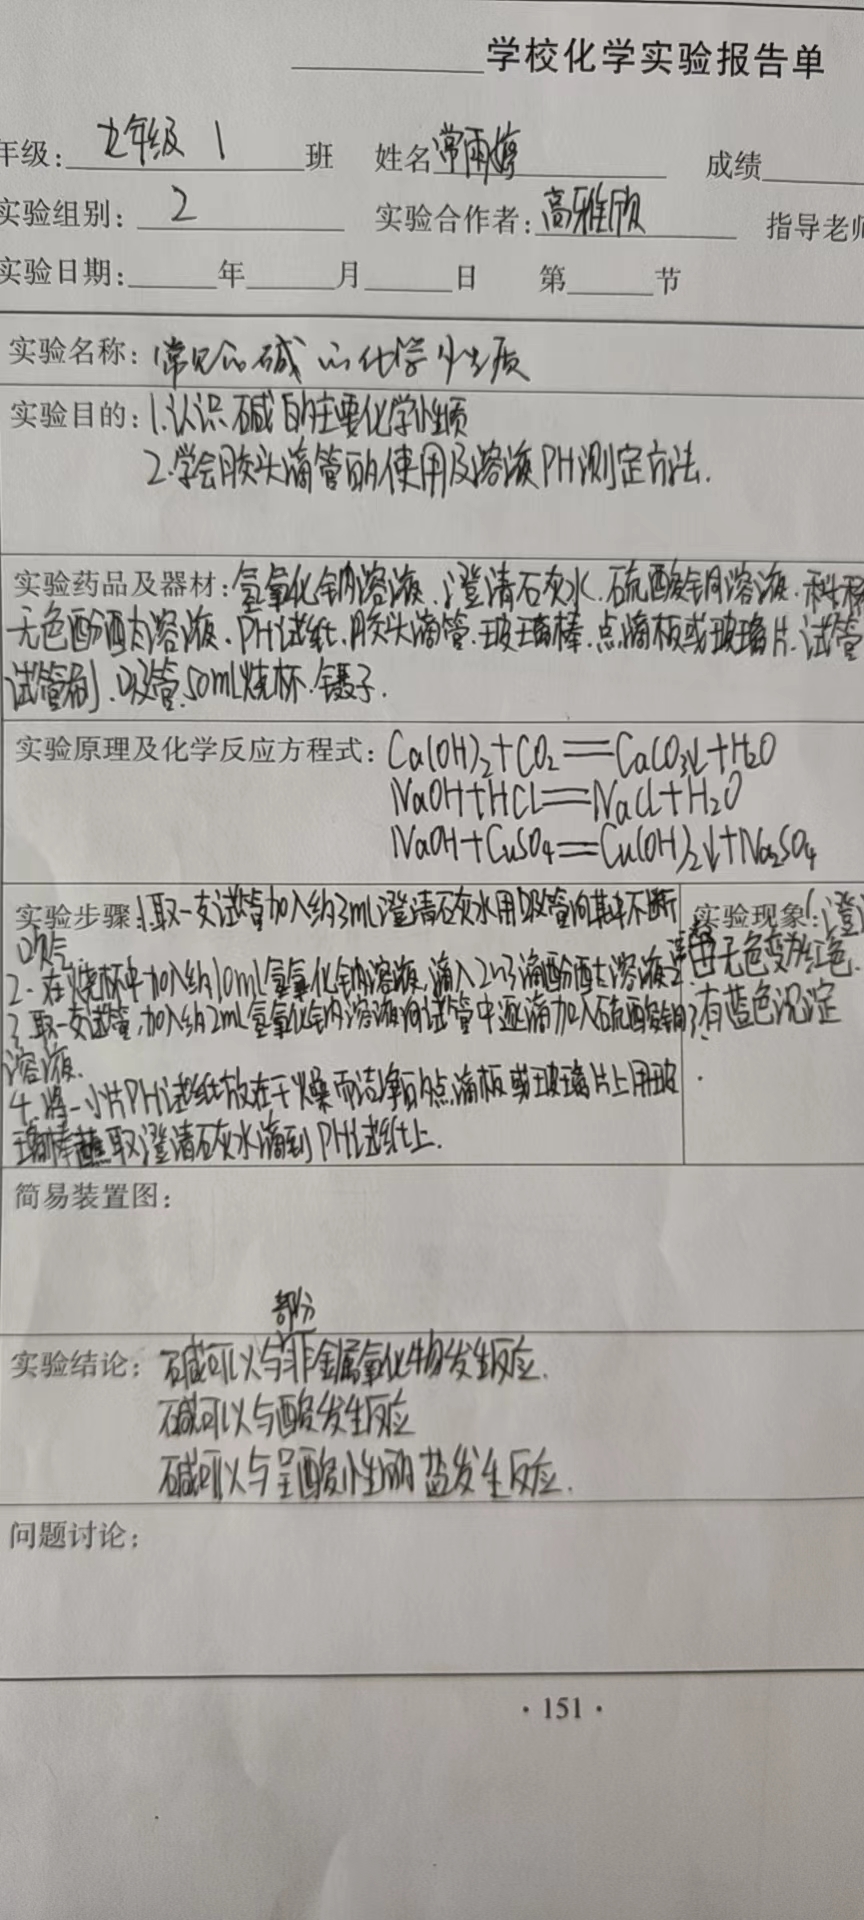 学校化学实验报告单
年级: 九年级 1 班 姓名 常雨婷 成绩
实验组别: 2 实验合作者: 高雅欣 指导老师
实验日期: 年 月 日 第 节
实验名称: 常见的碱的化学性质
实验目的: 1.认识碱的主要化学性质
2.学会胶头滴管的使用及溶液PH测定方法.
实验药品及器材: 氢氧化钠溶液、澄清石灰水、硫酸铜溶液、稀
无色酚酞溶液、PH试纸、胶头滴管、玻璃棒、点滴板或玻璃片、试管
试管刷、吸管、50mL烧杯、镊子.
实验原理及化学反应方程式: Ca(OH)2+CO2══CaCO3↓+H2O
NaOH+HCl══NaCl+H2O
NaOH+CuSO4══Cu(OH)2↓+Na2SO4
实验步骤: 1.取一支试管加入约3mL澄清石灰水用吸管向其中不断 实验现象: 1.澄
吹气.
2.在烧杯中加入约10mL氢氧化钠溶液,滴入2~3滴酚酞溶液 2.由无色变为红色.
3.取一支试管,加入约2mL氢氧化钠溶液向试管中逐滴加入硫酸铜 3.有蓝色沉淀
溶液.
4.将一小片PH试纸放在干燥而洁净的点滴板或玻璃片上用玻
璃棒蘸取澄清石灰水滴到PH试纸上.
简易装置图:
部分
实验结论: 碱可以与非金属氧化物发生反应.
碱可以与酸发生反应
碱可以与呈酸性的盐发生反应.
问题讨论:
·151·